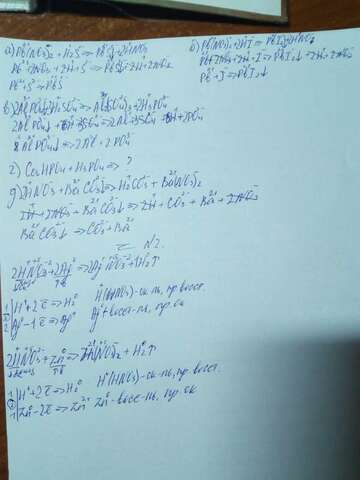 а) Pb(NO₃)₂ + H₂S ⇒ PbS↓ + 2HNO₃
Pb²⁺ + 2NO₃⁻ + 2H⁺ + S²⁻ ⇒ PbS↓ + 2H⁺ + 2NO₃⁻
Pb²⁺ + S²⁻ ⇒ PbS
б) Pb(NO₃)₂ + 2HI ⇒ PbI₂↓ + 2HNO₃
Pb²⁺ + 2NO₃⁻ + 2H⁺ + I⁻ ⇒ PbI₂↓ + 2H⁺ + 2NO₃⁻
Pb²⁺ + I⁻ ⇒ PbI₂↓
в) 2AlPO₄ + 3H₂SO₄ ⇒ Al₂(SO₄)₃ + 2H₃PO₄
г) Ca₃HPO₄ + H₃PO₄ ⇒ ?
д) 2HNO₃ + BaCO₃ ⇒ H₂CO₃ + Ba(NO₃)₂
2H⁺ + 2NO₃⁻ + BaCO₃↓ ⇒ 2H⁺ + CO₃²⁻ + Ba²⁺ + 2NO₃⁻
BaCO₃↓ ⇒ CO₃²⁻ + Ba²⁺
N2.
2HNO₃ + 2Ag⁰ ⇒ 2AgNO₃ + H₂↑
1 | H⁺ + 2ē ⇒ H₂⁰ H⁺(HNO₃) - ок-ль, пр. восст.
2 | Ag⁰ - 1ē ⇒ Ag⁺ Ag⁺ восст-ль, пр. ок
2HNO₃ + Zn⁰ ⇒ Zn(NO₃)₂ + H₂↑
1 | H⁺ + 2ē ⇒ H₂⁰ H⁺(HNO₃) - ок-ль, пр. восст.
1 | Zn⁰ - 2ē ⇒ Zn²⁺ Zn⁰ - восс-ль, пр. ок